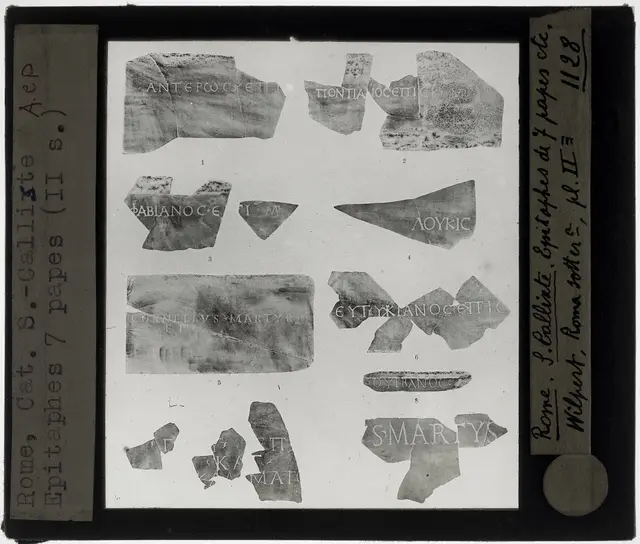 Rome, Cat. S.-Callixte Aep
Epitaphes 7 papes (II s.)
ΑΝΤΕΡωC·ΕΠΙ
1
ΠΟΝΤΙΑΝΟCΕΠΙ
2
ΦΑΒΙΑΝΟC·ΕΠΙ Μ
3
ΛΟΥΚΙC
4
CORNELIVS·MARTYR
5
ΕΥΤΥΧΙΑΝΟCΕΠΙC
6
ΟΥΡΒΑΝΟC
8
Κ Α Π
ΜΑΤ
S·MARTYS
Rome. S. Callixte. Epitaphes de 7 papes etc.
Wilpert, Roma sotter, pl. II 1128